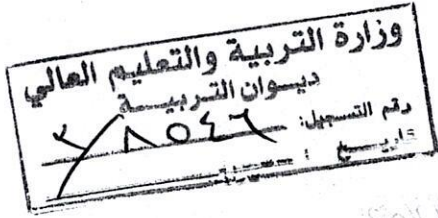 وزارة التربية والتعليم العالي
ديوان التربية
رقم التسجيل: ٨٥٤٦
تاريخ :